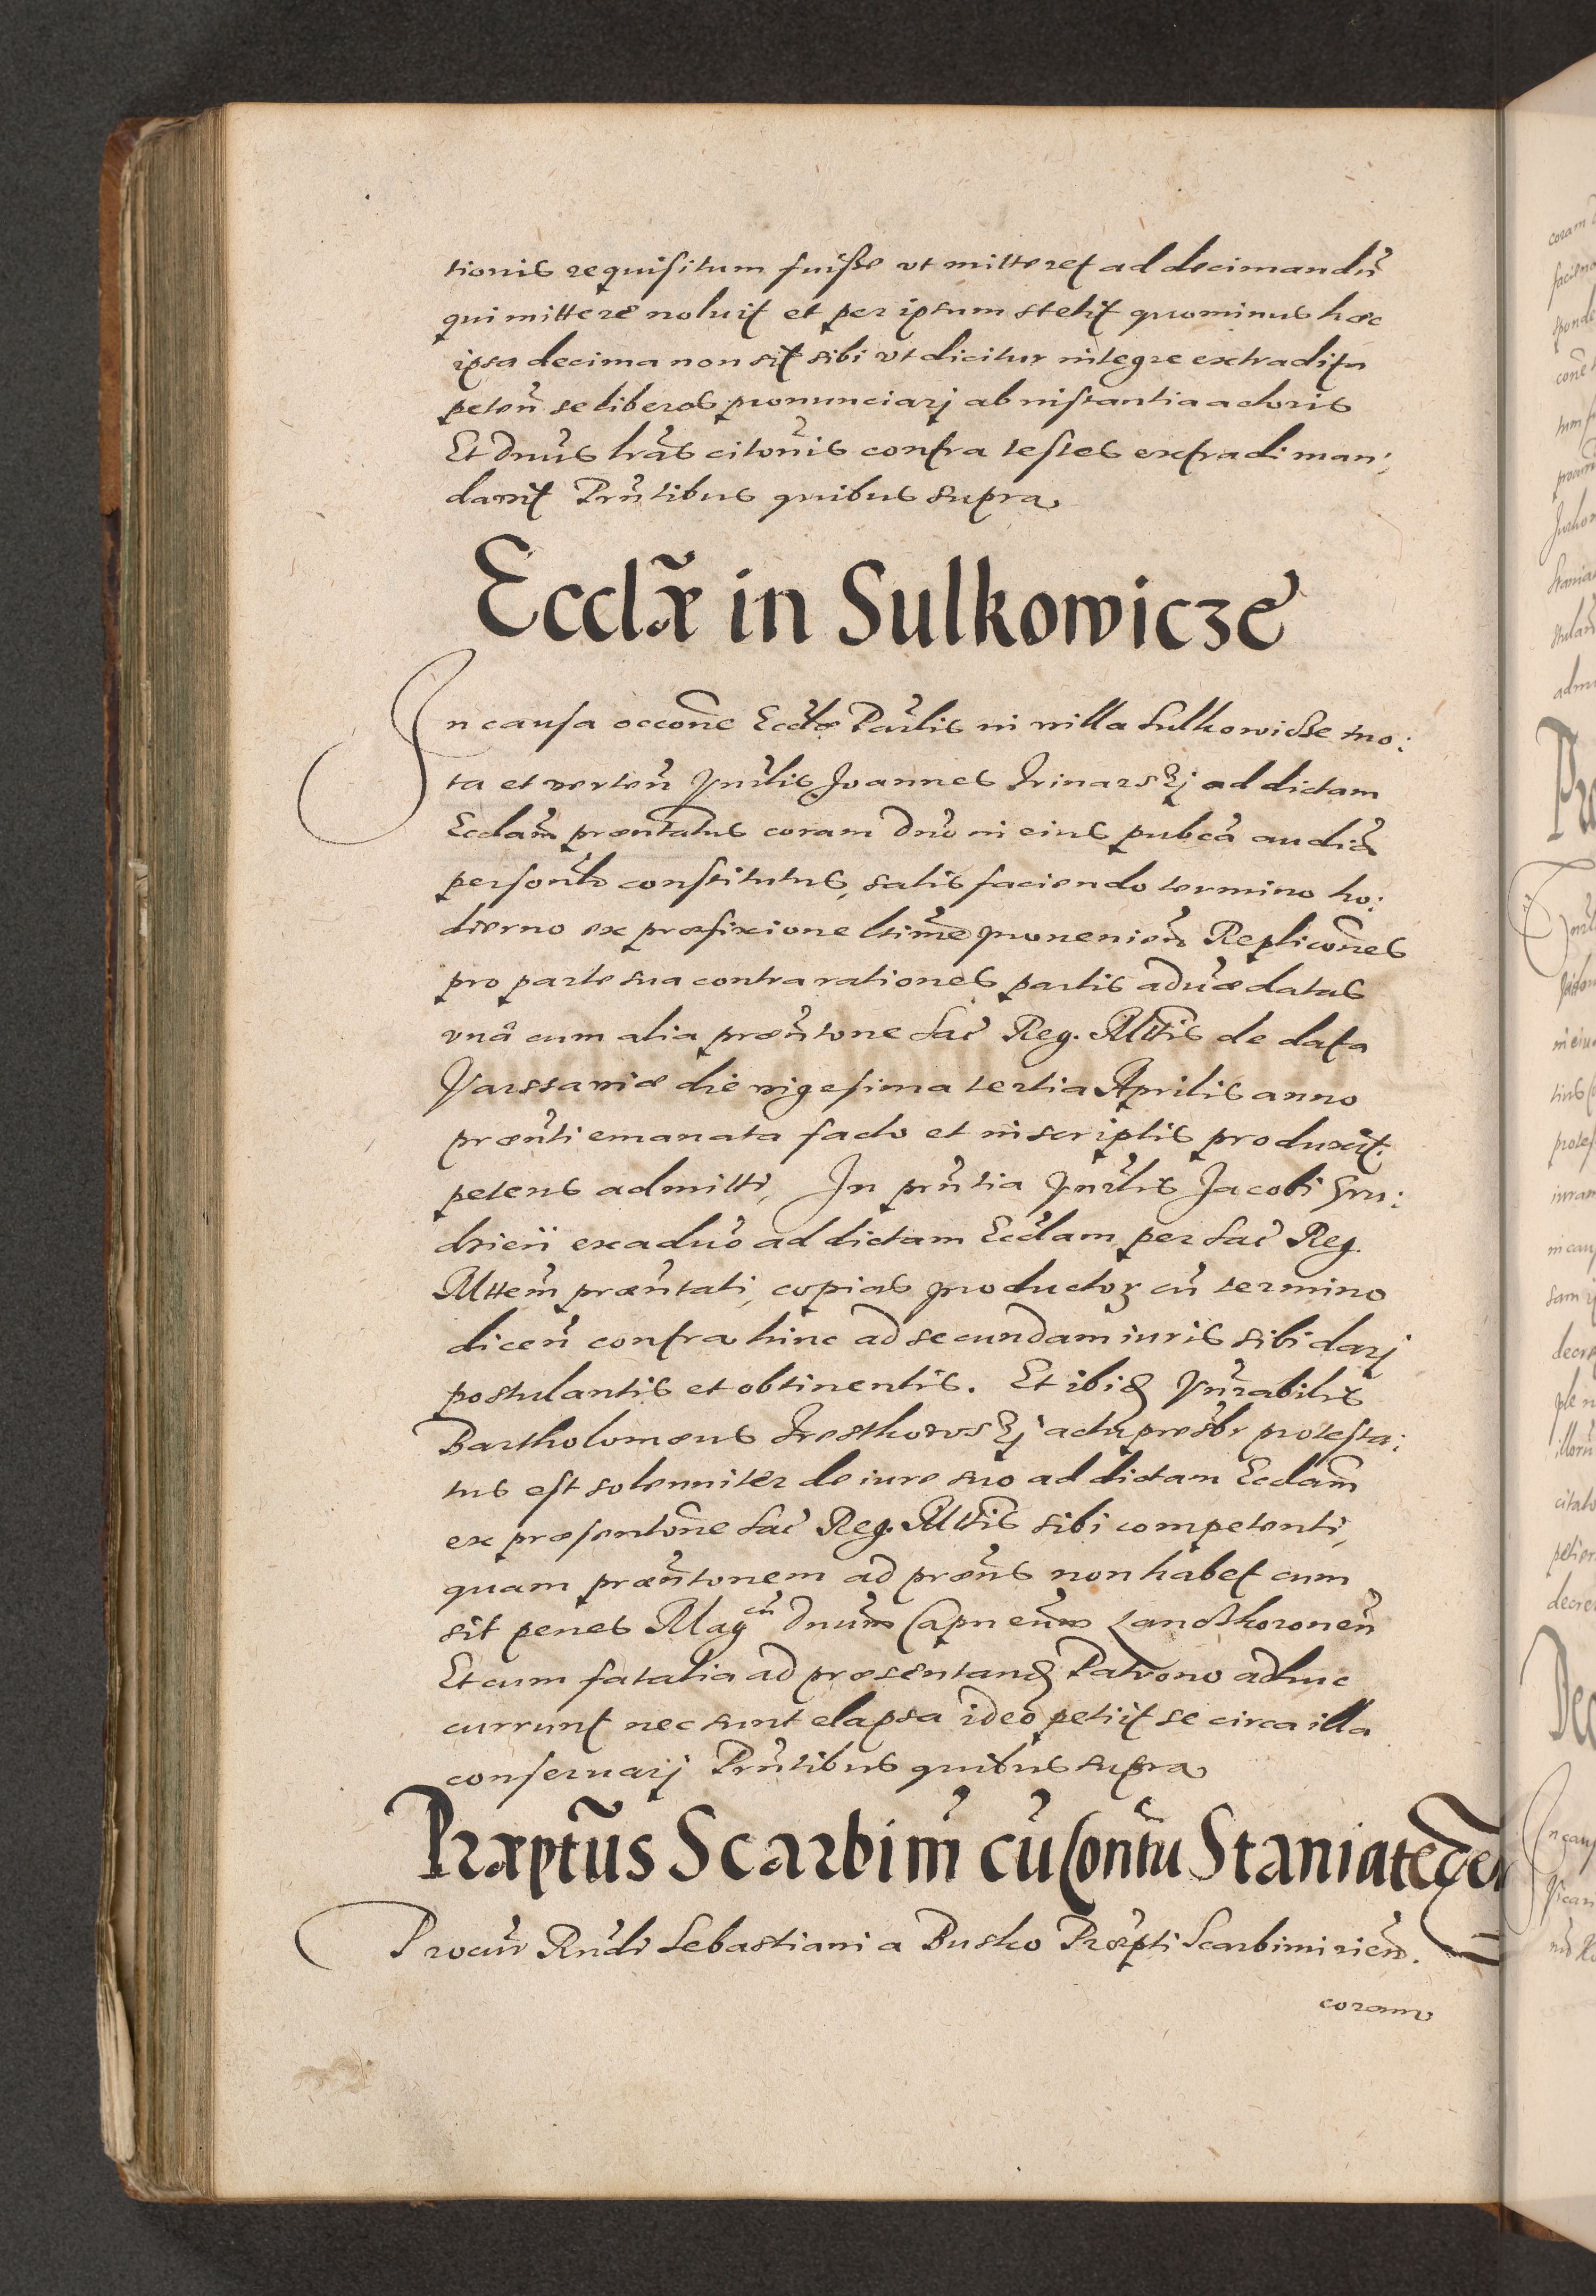 tionis requisitum fuisse ut mitteret ad decimandũ
qui mittere noluit et per ipsum stetit quominus hæc
ipsa decima non sit sibi ut dicitur integre extradita
peteñ se liberos pronunciarj ab instantia actoris
Et Dnus lras citonis contra testes extradi man:
davit Prntibus quibus supra
Ecclæ in Sulkowicze
In causa occone Ecclæ Paulis in villa Sulkowicze mo:
ta et verteñ Vnrlis Joannes ad dictam
Ecclam præntatus coram Dno in eius pubca audia
personlr constitutus, satisfaciendo termino ho:
dierno ex præfixione ltime provenieñ Replicones
pro parte sua contra rationes partis aduæ datas
unà cum alia præntone Sac Reg. Mttis de data
Varssaviæ die vigesima tertia Aprilis anno
prænti emanata facto et in scriptis produxit.
petens admitti, In prntia Vnrlis Jacobi Gru:
dzień ex aduo ad dictam Ecclam per Sac Reg.
Mttem præntati, copias productoꝝ cũ termino
diceñ contra hinc ad secundam iuris sibi darj
postulantis et obtinentis. Et ibid Vnrabilis
Bartholomæus actu præsbr protesta:
tus est solenniter de iure suo ad dictam Ecclam
ex præsentone Sac Reg. Mttis sibi competenti,
quam præntonem ad præns non habet cum
sit penes Magcũ Dnum Capneum Landskoroneñ
Et cum fatalia ad præsentand Patrono adhuc
currunt nec sunt elapsa ideo petiit se circa illa
conseruarj Prntibus quibus supra
Præptus Scarbim cũ Contu Staniateceñ
Procur Rndi Sebastiani a Busko Præpti Scarbimirieñ.
coram